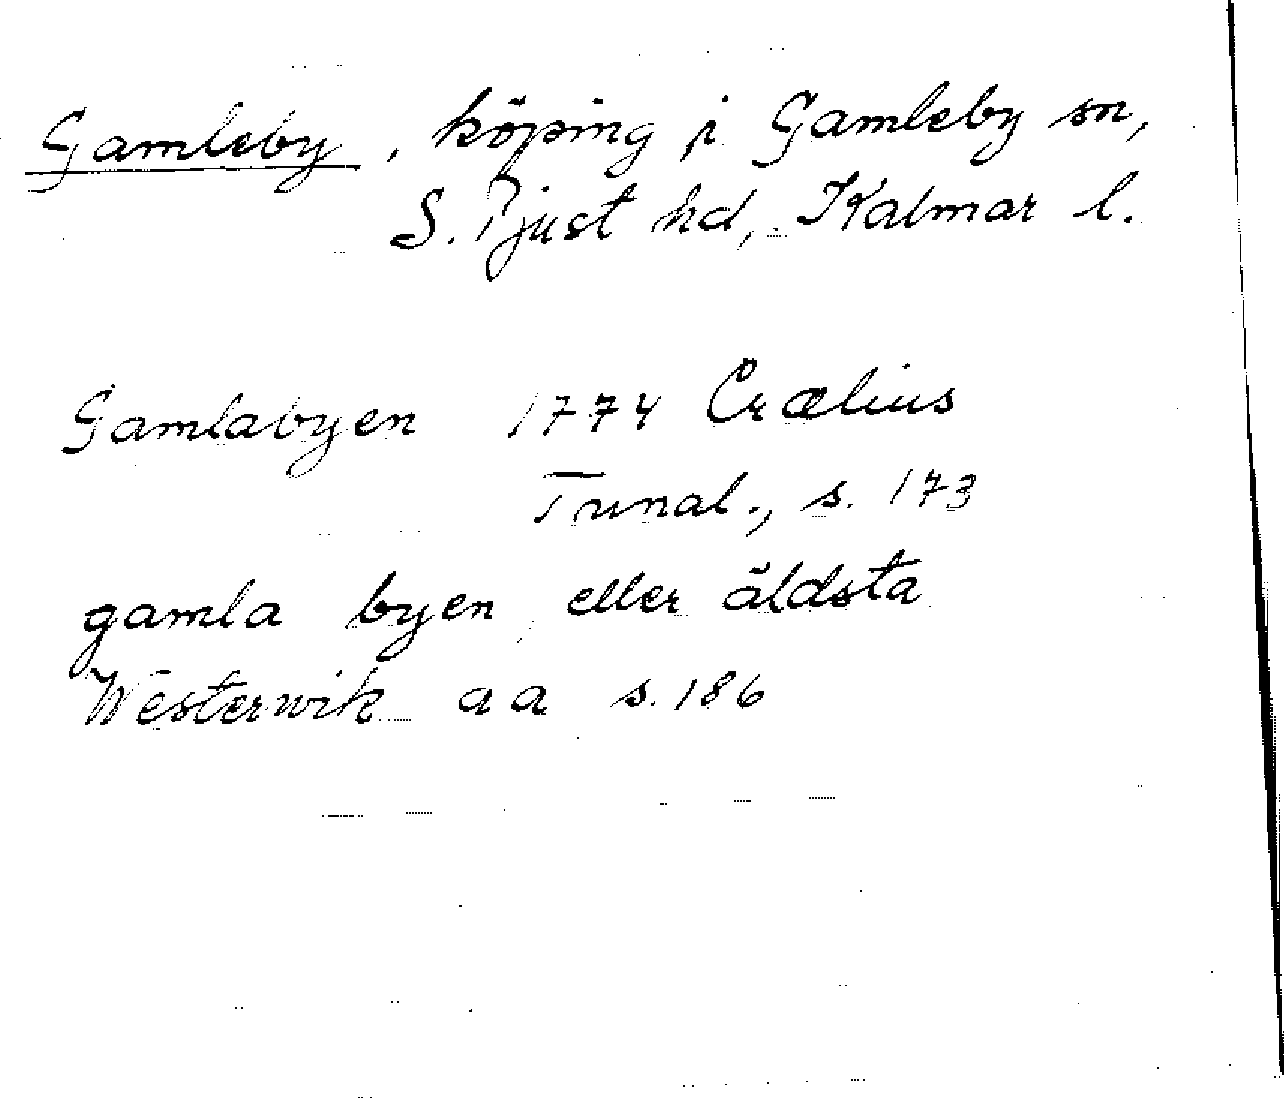 Gamleby, köping i Gamleby sn,
S. Tjust hd, Kalmar l.
Gamlabyen 1774 Crælius
Tunal., s. 173
gamla byen, eller äldsta
Westerwik aa s. 186